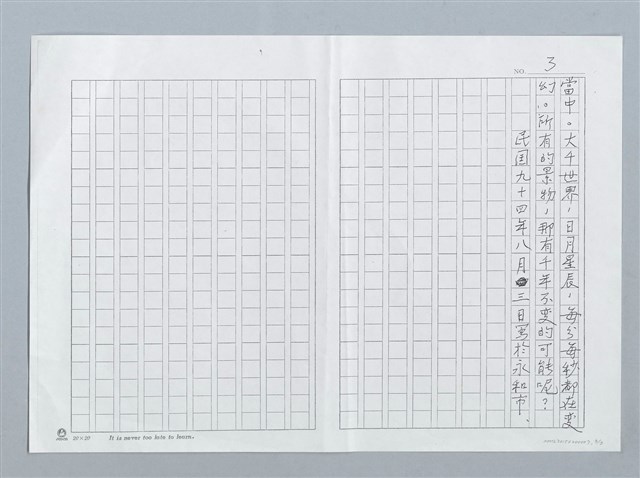 NO. 3
當中。大千世界，日月星辰，每分每秒都在变
幻。所有的景物，那有千年不变的可能呢？
民国九十四年八月三日写於永和市.
20×20 It is never too late to learn.